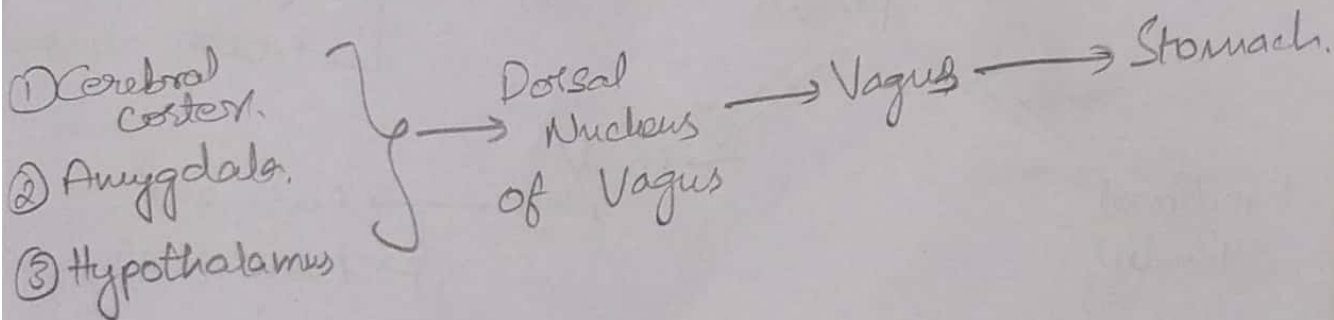 ① Cerebral
cortex.
② Amygdala.
③ Hypothalamus
Dorsal
Nucleus
of Vagus
Vagus
Stomach.